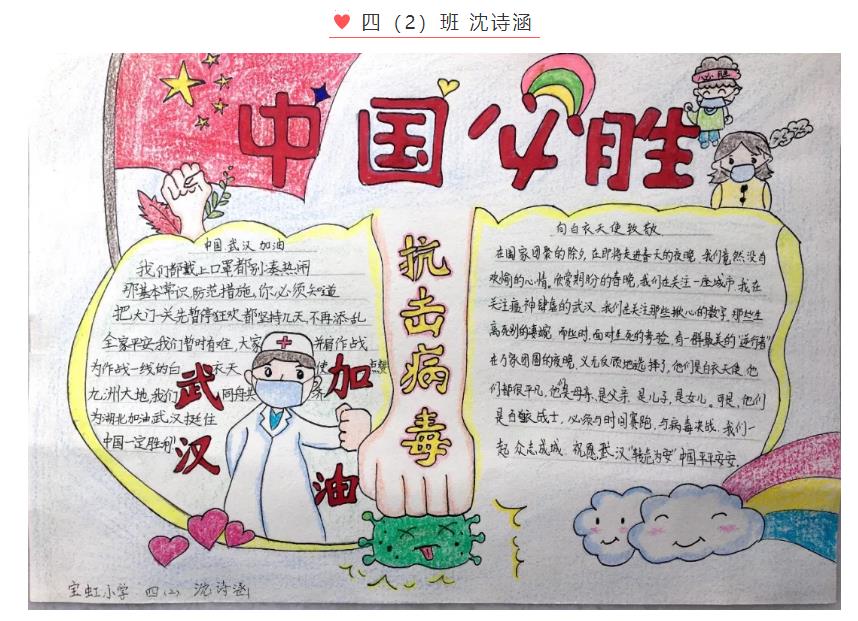 四（2）班 沈诗涵
中国必胜
必胜
中国武汉加油
我们都戴上口罩都别凑热闹
那基本常识防范措施，你必须知道
把大门一关先暂停狂欢都坚持几天，不再添乱
全家平安我们暂时有难，大家 并肩作战
为作战一线的白 衣天 使 点赞
九洲大地，我们 同舟共
为湖北加油武汉挺住
中国一定胜利
武汉
加油
抗击病毒
向白衣天使致敬
在国家团聚的除夕，在即将走进春天的夜晚，我们竟然没有
欢愉的心情，欣赏期盼的春晚，我们在关注一座城市，我在
关注瘟神肆虐的武汉，我们在关注那些揪心的数字，那些生
离死别的凄婉。而此时，面对生死的考验，有一群最美的“逆行者”
在万家团圆的夜晚，义无反顾地选择了，他们是白衣天使，他
们都很平凡，他们是母亲，是父亲，是儿子，是女儿。可是，他们
是白衣战士，必须与时间赛跑，与病毒决战。我们一
起众志成城，祝愿武汉“转危为安”中国平平安安。
宝虹小学 四(2) 沈诗涵